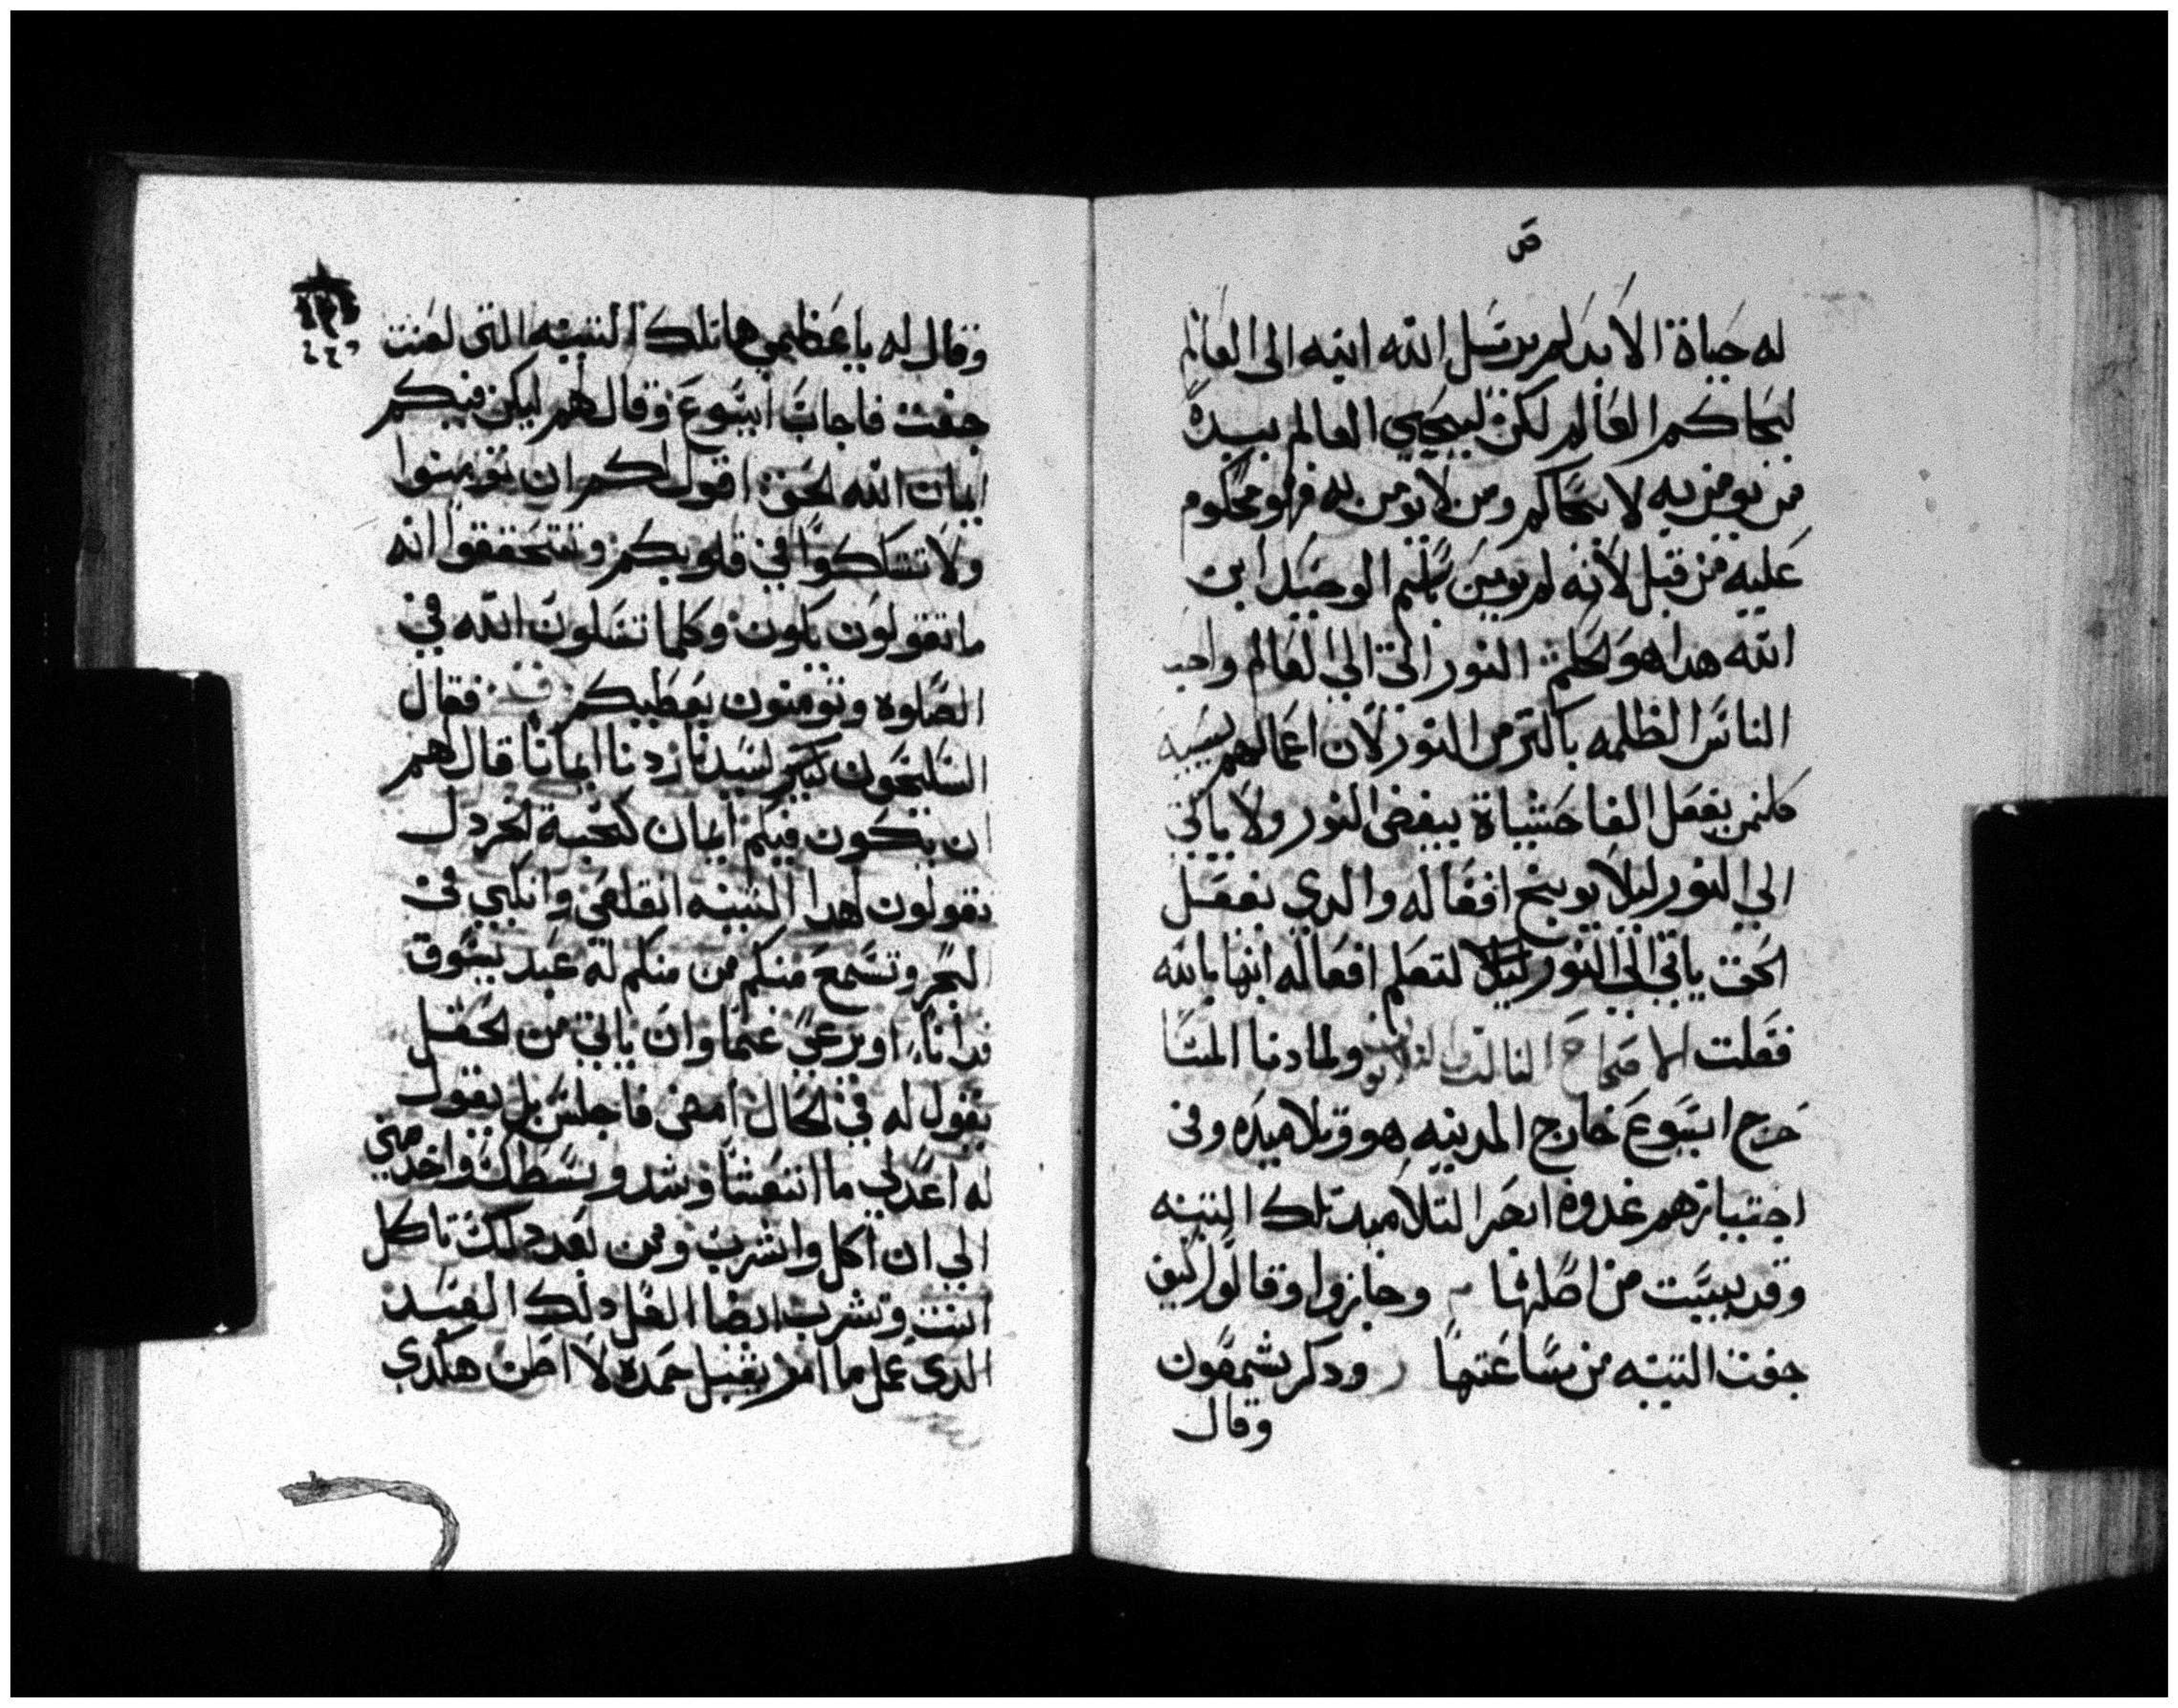 له حياة الابد لم يرسل الله ابنه الى العالم
ليحاكم العالم لكن ليحيي العالم بيده
فمن يومن به لا يحاكم ومن لا يومن به فهو محكوم
عليه من قبل لانه لم يومن باسم الوحيد ابن
الله هدا هو الحكم النور اتى الي العالم واحب
الناس الظلمه باكتر من النور لان اعمالهم
كلمن يفعل الفاحشياة يبغض النور ولا ياتي
الي النور ليلا يوبخ افعاله والدي يفعل
الحق ياتي الي النور لتعلم افعاله انها بالله
فعلت الاصحاح التالت ولما دنا المسا
خرج ايسوع خارج المدينه هو وتلاميده وفي
اجتيازهم غدوة ابصر التلاميد تلك التينه
وقد يبست من اصلها وجازوا وقالوا كيف
جفت التينه من ساعتها ودكر شمعون
وقال
وقال له يا عظيمي ها تلك التينه التي لعنت
جفت فاجاب ايسوع وقال لهم ليكن فيكم
ايمان الله الحق اقول لكم ان تومنوا
ولا تتشاكوا في قلوبكم وتتحققوا انه
ما تقولون يكون وكلما تسلون الله في
الصلوه وتومنون يعطيكم فقال
السليحون لسيدنا زدنا ايمانا قال لهم
ان يكون فيكم ايمان كحبة الخردل
تقولون لهدا التينه انقلعي وانكبي في
البحر وتسمع منكم من منكم له عبد يسوق
فدانا او يرعي غنما وان ياتي من الحقل
يقول له في الحال امضي فاجلس بل يقول
له اعد لي ما اتعشا وشد وسطك واخدمني
الي ان اكل واشرب ومن بعد دلك تاكل
انت وتشرب ايضا العل دلك العبد
الدي عمل ما امر يقبل حمده لا اظن هكدي